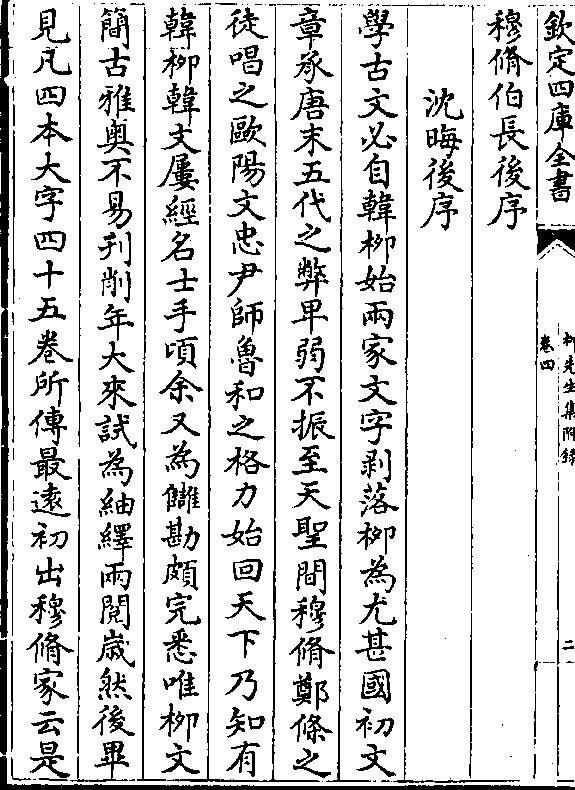 欽定四庫全書
柳先生集附錄
卷四
二
穆脩伯長後序
沈晦後序
學古文必自韓柳始兩家文字剥落柳為尤甚國初文
章承唐末五代之弊卑弱不振至天聖間穆脩鄭條之
徒唱之歐陽文忠尹師魯和之格力始回天下乃知有
韓柳韓文屢經名士手頃余又為讎勘頗完悉唯柳文
簡古雅奥不易刋削年大來試為紬繹兩閱歳然後畢
見凡四本大字四十五卷所傳最逺初出穆脩家云是